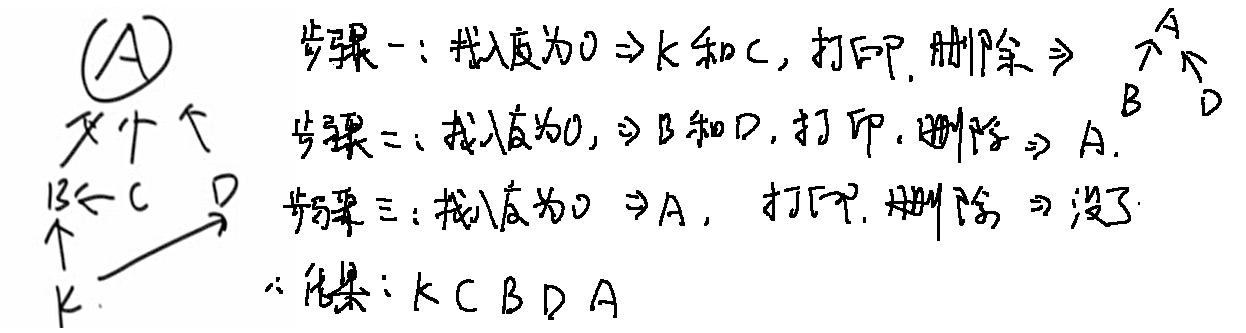 A
B C D
K
步骤一：找入度为0 ⇒ K和C，打印，删除 ⇒
A
B D
步骤二：找入度为0，⇒ B和D，打印，删除 ⇒ A.
步骤三：找入度为0 ⇒ A， 打印，删除 ⇒ 没了.
∴ 结果：K C B D A